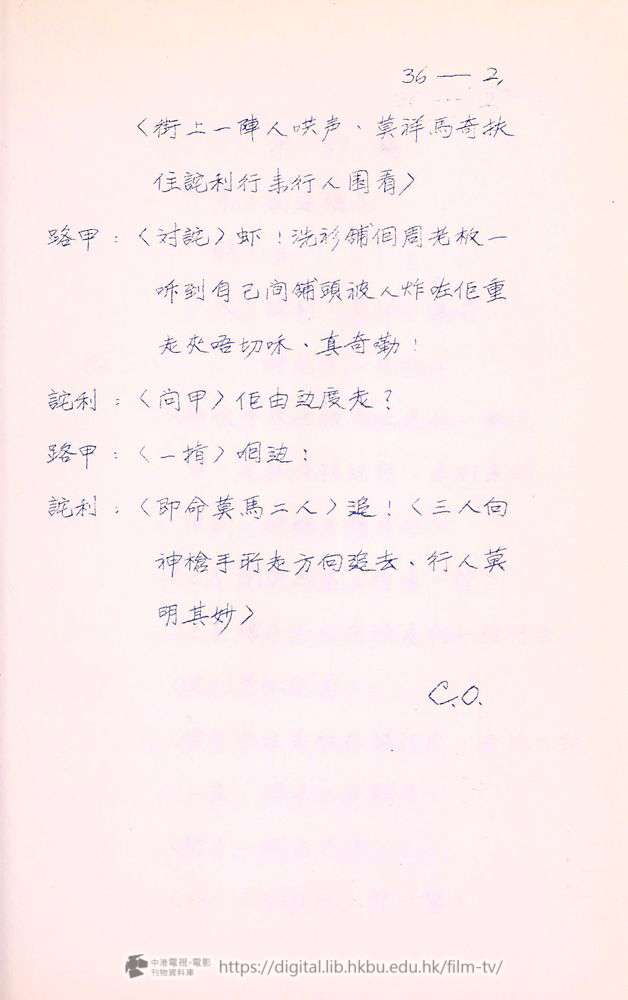 36 — 2,
〈街上一陣人哄声、莫祥馬奇扶
住詫利行来行人围看〉
路甲：〈对詫〉虾！洗衫舖個周老板一
听到自己间舖頭被人炸咗佢重
走夾唔切咪、真奇嘞！
詫利：〈向甲〉佢由边度走？
路甲：〈一揹〉個边：
詫利：〈即命莫馬二人〉追！〈三人向
神槍手所走方向追去、行人莫
明其妙〉
C.O.
中港電視·電影
刊物資料庫
https://digital.lib.hkbu.edu.hk/film-tv/